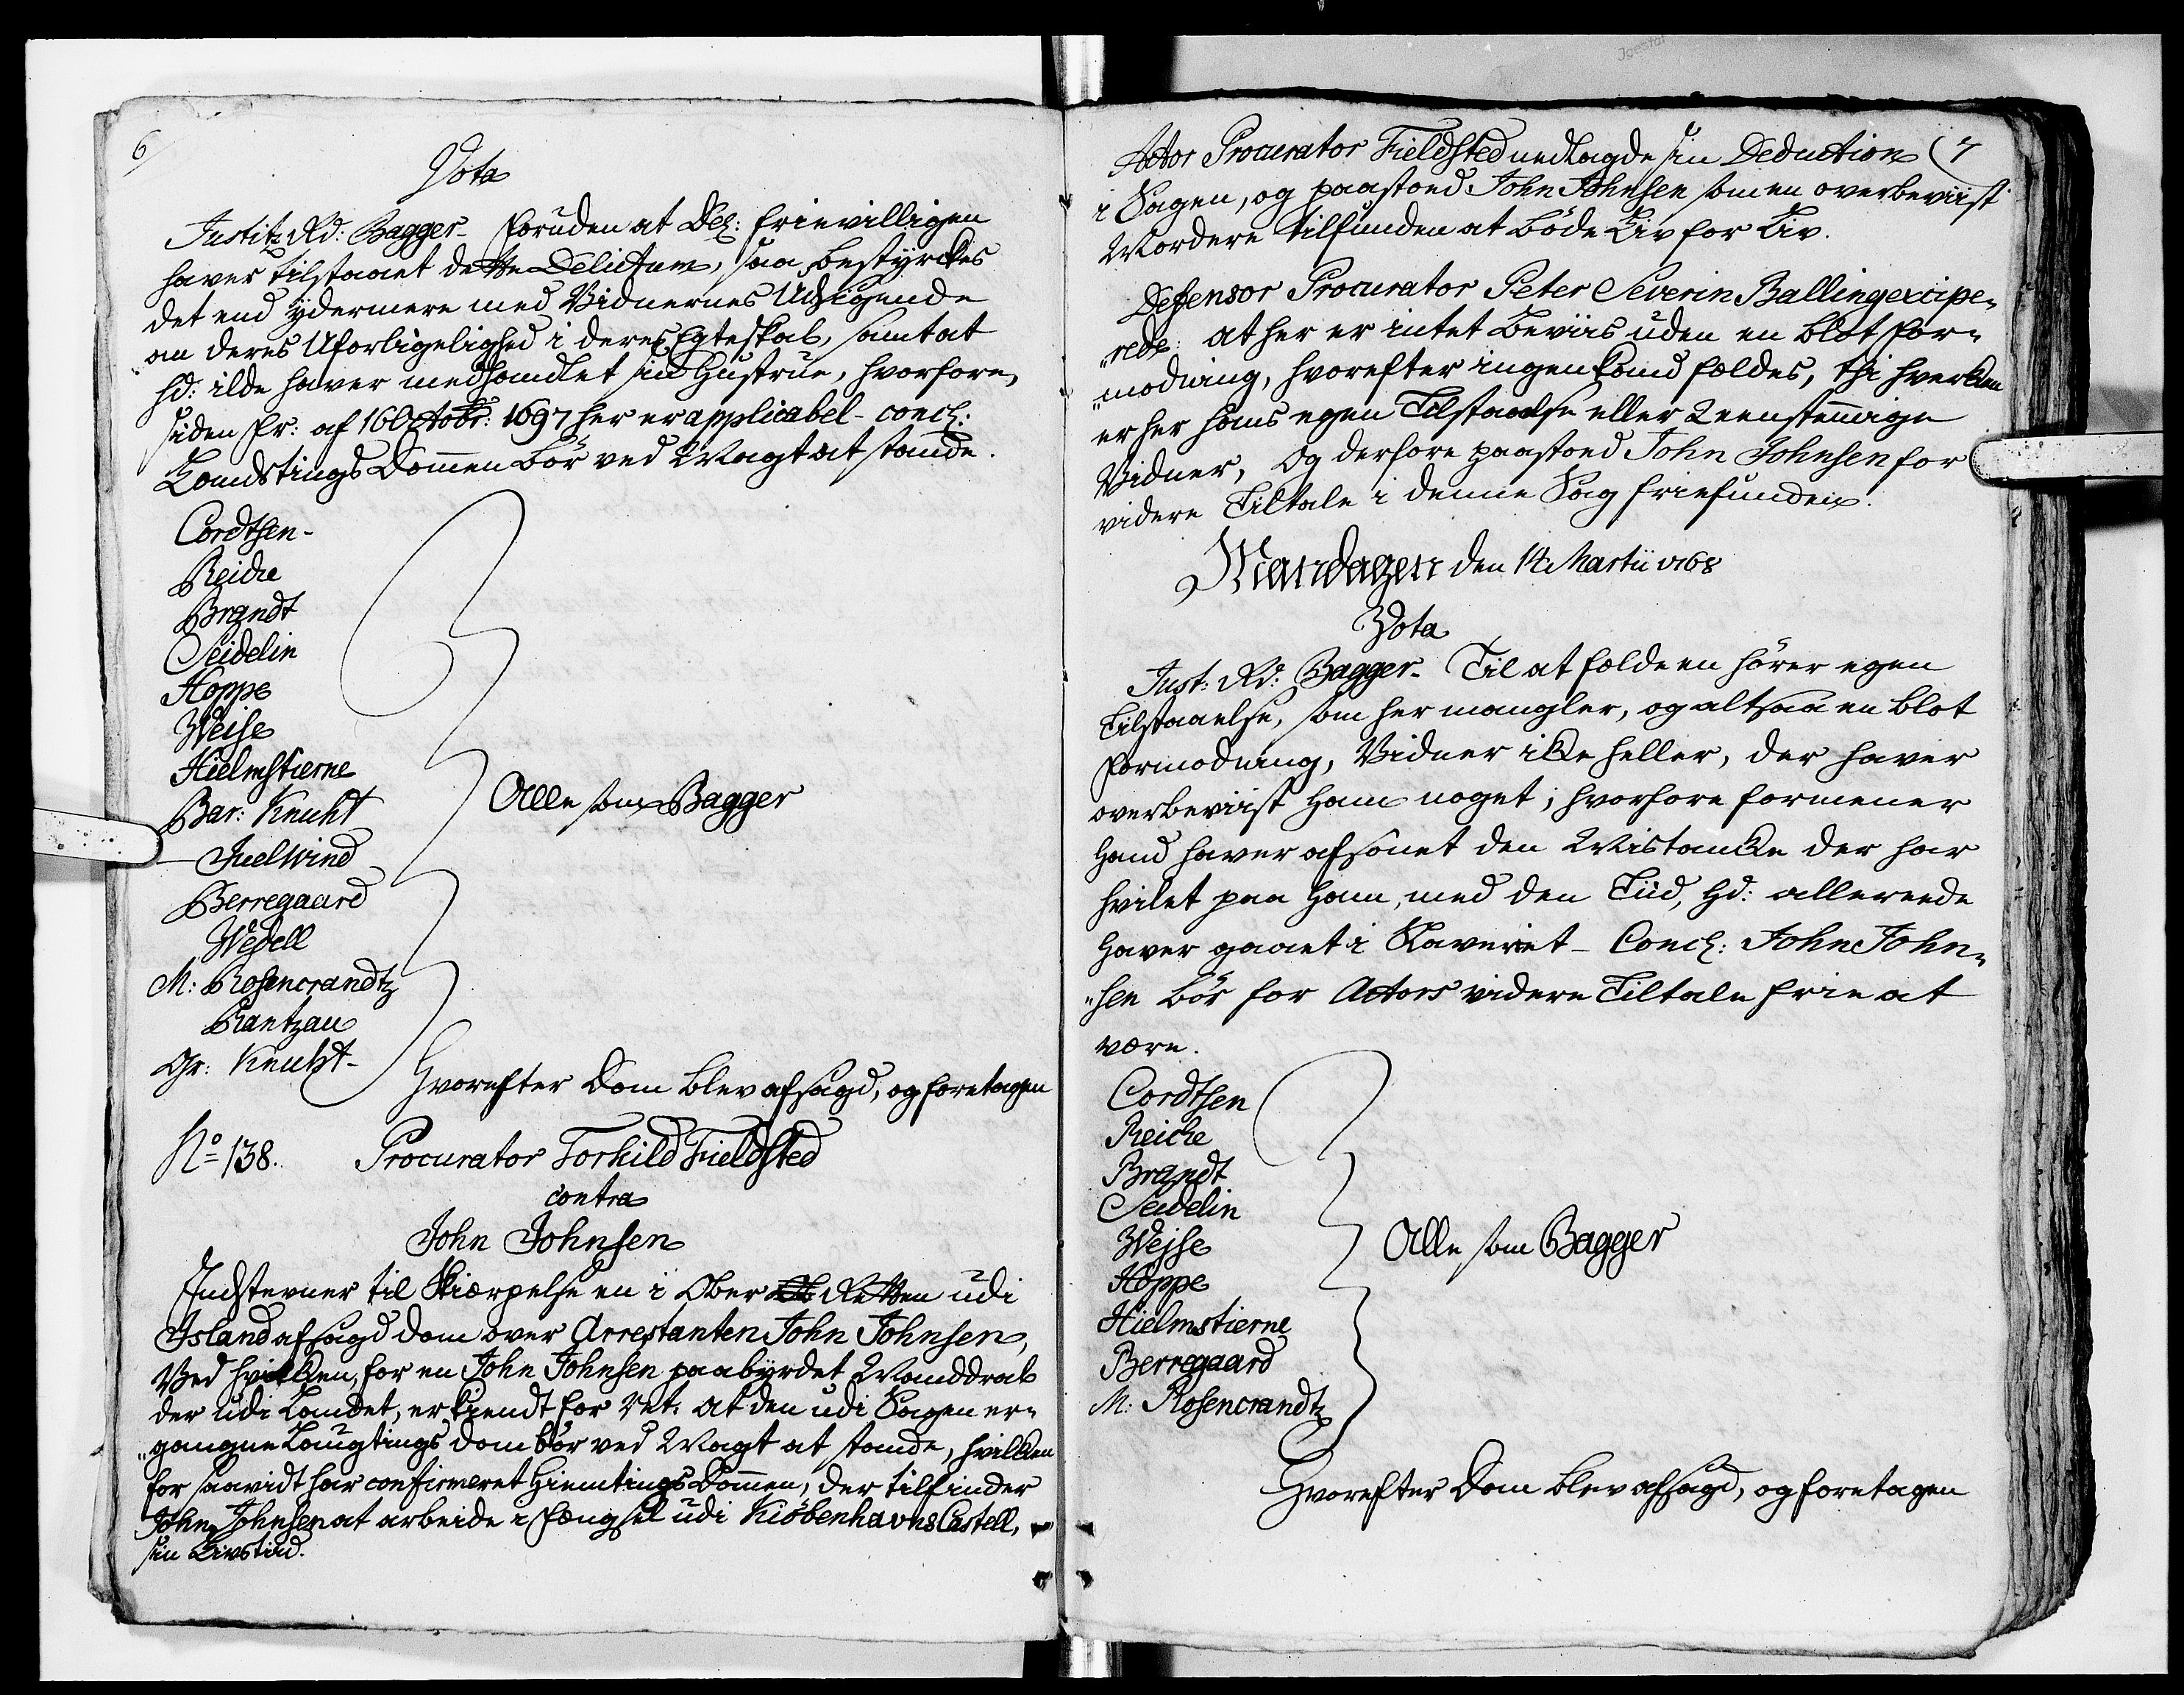 6/
Vota
Justitz Rd: Bagger- Foruden at Del: frievilligen
haver tilstaaet dette Delictum, saa bestyrckes
det end ydermere med Vidnernes Udsigende
om deres Uforligelighed i deres Egteskab, samt at
hd: ilde haver medhandlet sin Hustrue, hvorfore,
siden Fr: af 16 Octobr: 1697 her er applicabel- concl:
Landstings Dommen bör ved Magt at stande.
Cordtsen-
Reiche
Brandt
Seidelin
Hoppe
Weise
Hielmstierne
Bar: Knuht
Juel Wind
Berregaard
Wedell
M: Rosencrandtz
Rantzau
Gr: Knuht-
Alle som Bagger
Hvorefter Dom blev afsagd, og foretagen
No 138. Procurator Torkild Fieldsted
contra
John Johnsen
Indstevner til Skiærpelse en i Ober Retten udi
Island afsagd dom over Arrestanten John Johnsen,
Ved hvilken, for en John Johnsen paabyrdet Manddrab
der udi Landet, erkiendt for Ret: at den udi Sagen er-
"gangne Laugtings dom bör ved Magt at stande, hvilken
for saavidt har confirmeret Hiemtings Dommen, der tilfinder
John Johnsen at arbeide i Fængsel udi Kiöbenhavns Castell,
sin Livstiid.
Actor Procurator Fieldsted nedlagde sin Deduction (7
i Sagen, og paastoed John Johnsen som en overbeviist
Mordere tilfunden at böde Liv for Liv.
Defensor Procurator Peter Severin Balling excipe-
"rede: at her er intet Beviis uden en blot For-
"modning, hvorefter ingen kand fældes, thi hverken
er her hans egen Tilstaaelse eller 2 eenstemmige
Vidner, Og derfore paastoed John Johnsen for
videre Tiltale i denne Sag friefunden.
Mandagen den 14 Martii 1768
Vota
Just: Rd: Bagger- Til at fælde en hörer egen
Tilstaaelse, som her mangler, og altsaa en blot
Formodning, Vidner ikke heller, der haver
overbeviist ham noget; hvorfore formener
hand haver afsonet den Mistanke der har
hvilet paa ham, med den Tiid, hd: allereede
haver gaaet i Slaveriet- Concl: John John-
"sen bör for Actors videre Tiltale frie at
være.
Cordtsen
Reiche
Brandt
Seidelin
Wejse
Hoppe
Hielmstierne
Berregaard
M: Rosencrandtz
Alle som Bagger
Hvorefter Dom blev afsagd, og foretagen